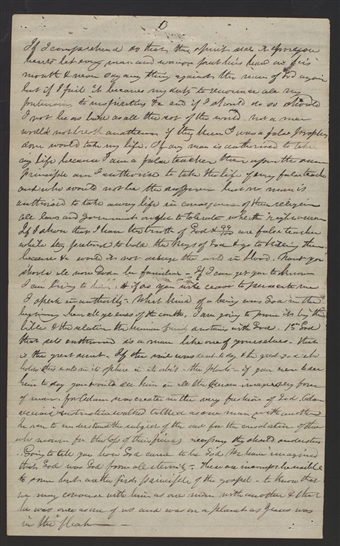 If I comprehend so that the spirit seals it upon your
hearts let every man and woman put his hand on his
mouth & never say any thing against the man of God again
but if I fail it becomes my duty to renounce all my
pretensions to inspiration &c and if I should do so should
I not be as bad as all the rest of the world not a man
would not seek another if they knew I was a false prophet
some would take my life. If any man is authorised to take
my life because I am a false teacher then upon the same
principle am I authorised to take the life of any false teacher
and who would not be the sufferer but no man is
authorised to take away life in consequence of their religion
all laws and governments ought to tolerate whether right or wrong
If I show that I have the truth of God & 99 are false teachers
while they pretend to hold the keys of God & go to killing them
because & would it not deluge the world in blood. I want you
should all know God be familiar If I can get you to know
I am bring to him & if so you cease to persecute me
I speak in authority. What kind of a being was God in the
beginning hear all ye ends of the earth, I am going to prove it by the
bible & the relation the human family sustains with God. 1st God
that sits enthroned is a man like one of yourselves. that
is the great secret. If the veil was rent to day & the great God who
holds this world in its sphere in its orbit the planets if you were to see
him to day you would see him in all the person image very form
of man, for Adam was created in the very fashion of God. Adam
receives instruction walked talked as one man with another
he was to understand the subject of the dead for the consolation of those
who mourn for the loss of their friends necessary they should understand
Going to tell you how God came to be God. We have imagined
that God was God from all eternity These are incomprehensible
to some but are the first principle of the gospel to know that
we may converse with him as one man with another & that
he was once as one of us and was on a planet as Jesus was
in the flesh